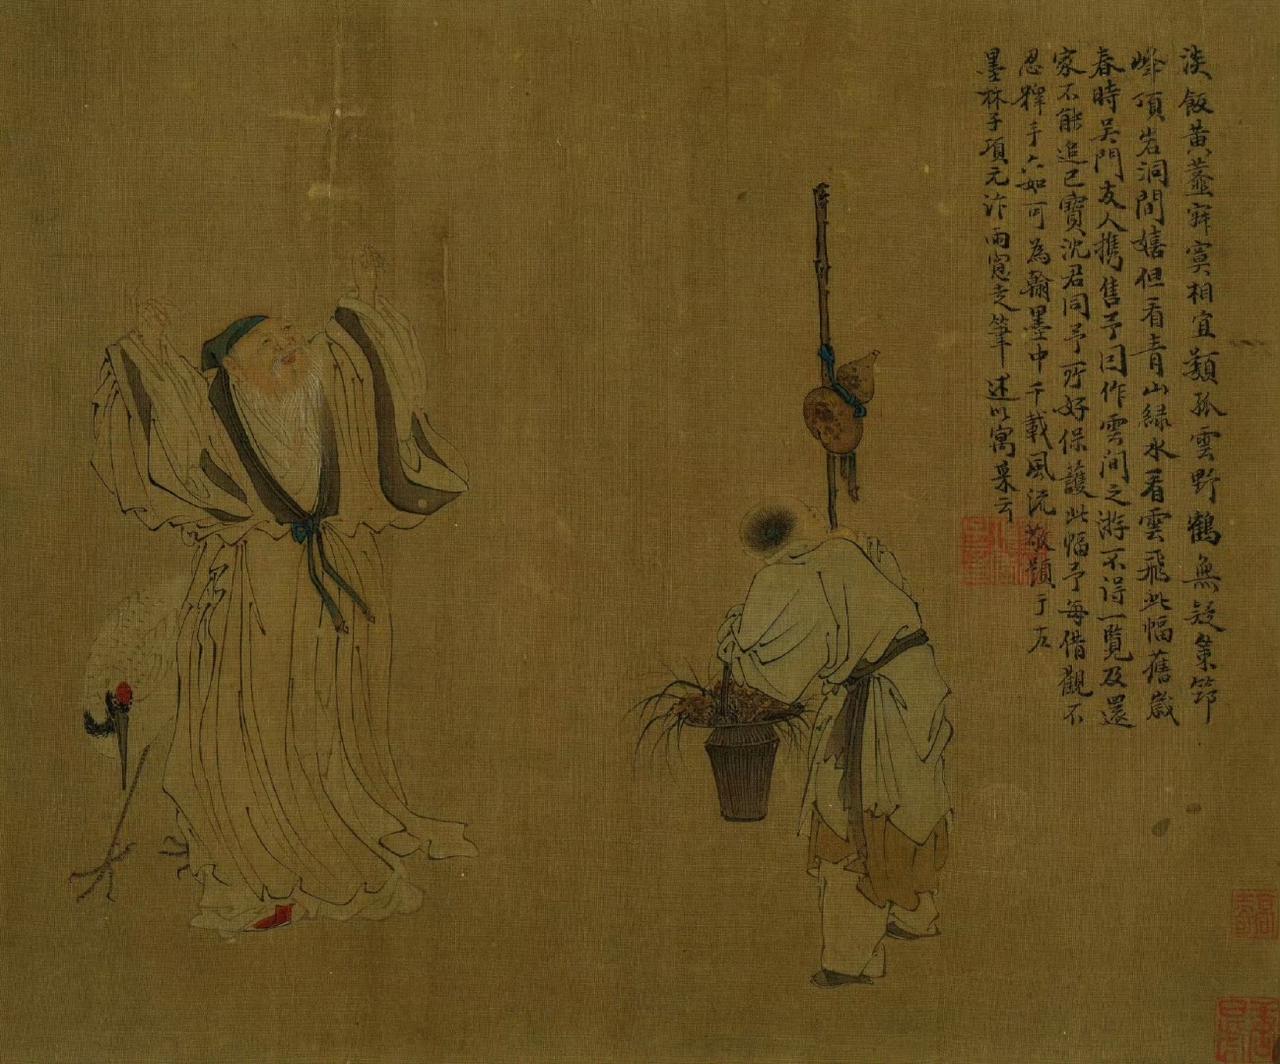 淡飯黃虀寂寞相宜顥孤雲野鶴無疑筇
峰頂岩洞間嬉但看青山綠水看雲飛此幅舊歲
春時吴門友人携售予因作雲间之游不得一覽及還
家不能追已寶沈君同予所好保護此幅予每借觀不
忍釋手六如可為翰墨中千載風流敬題于左
墨林子項元汴雨窓走筆述以寓采云